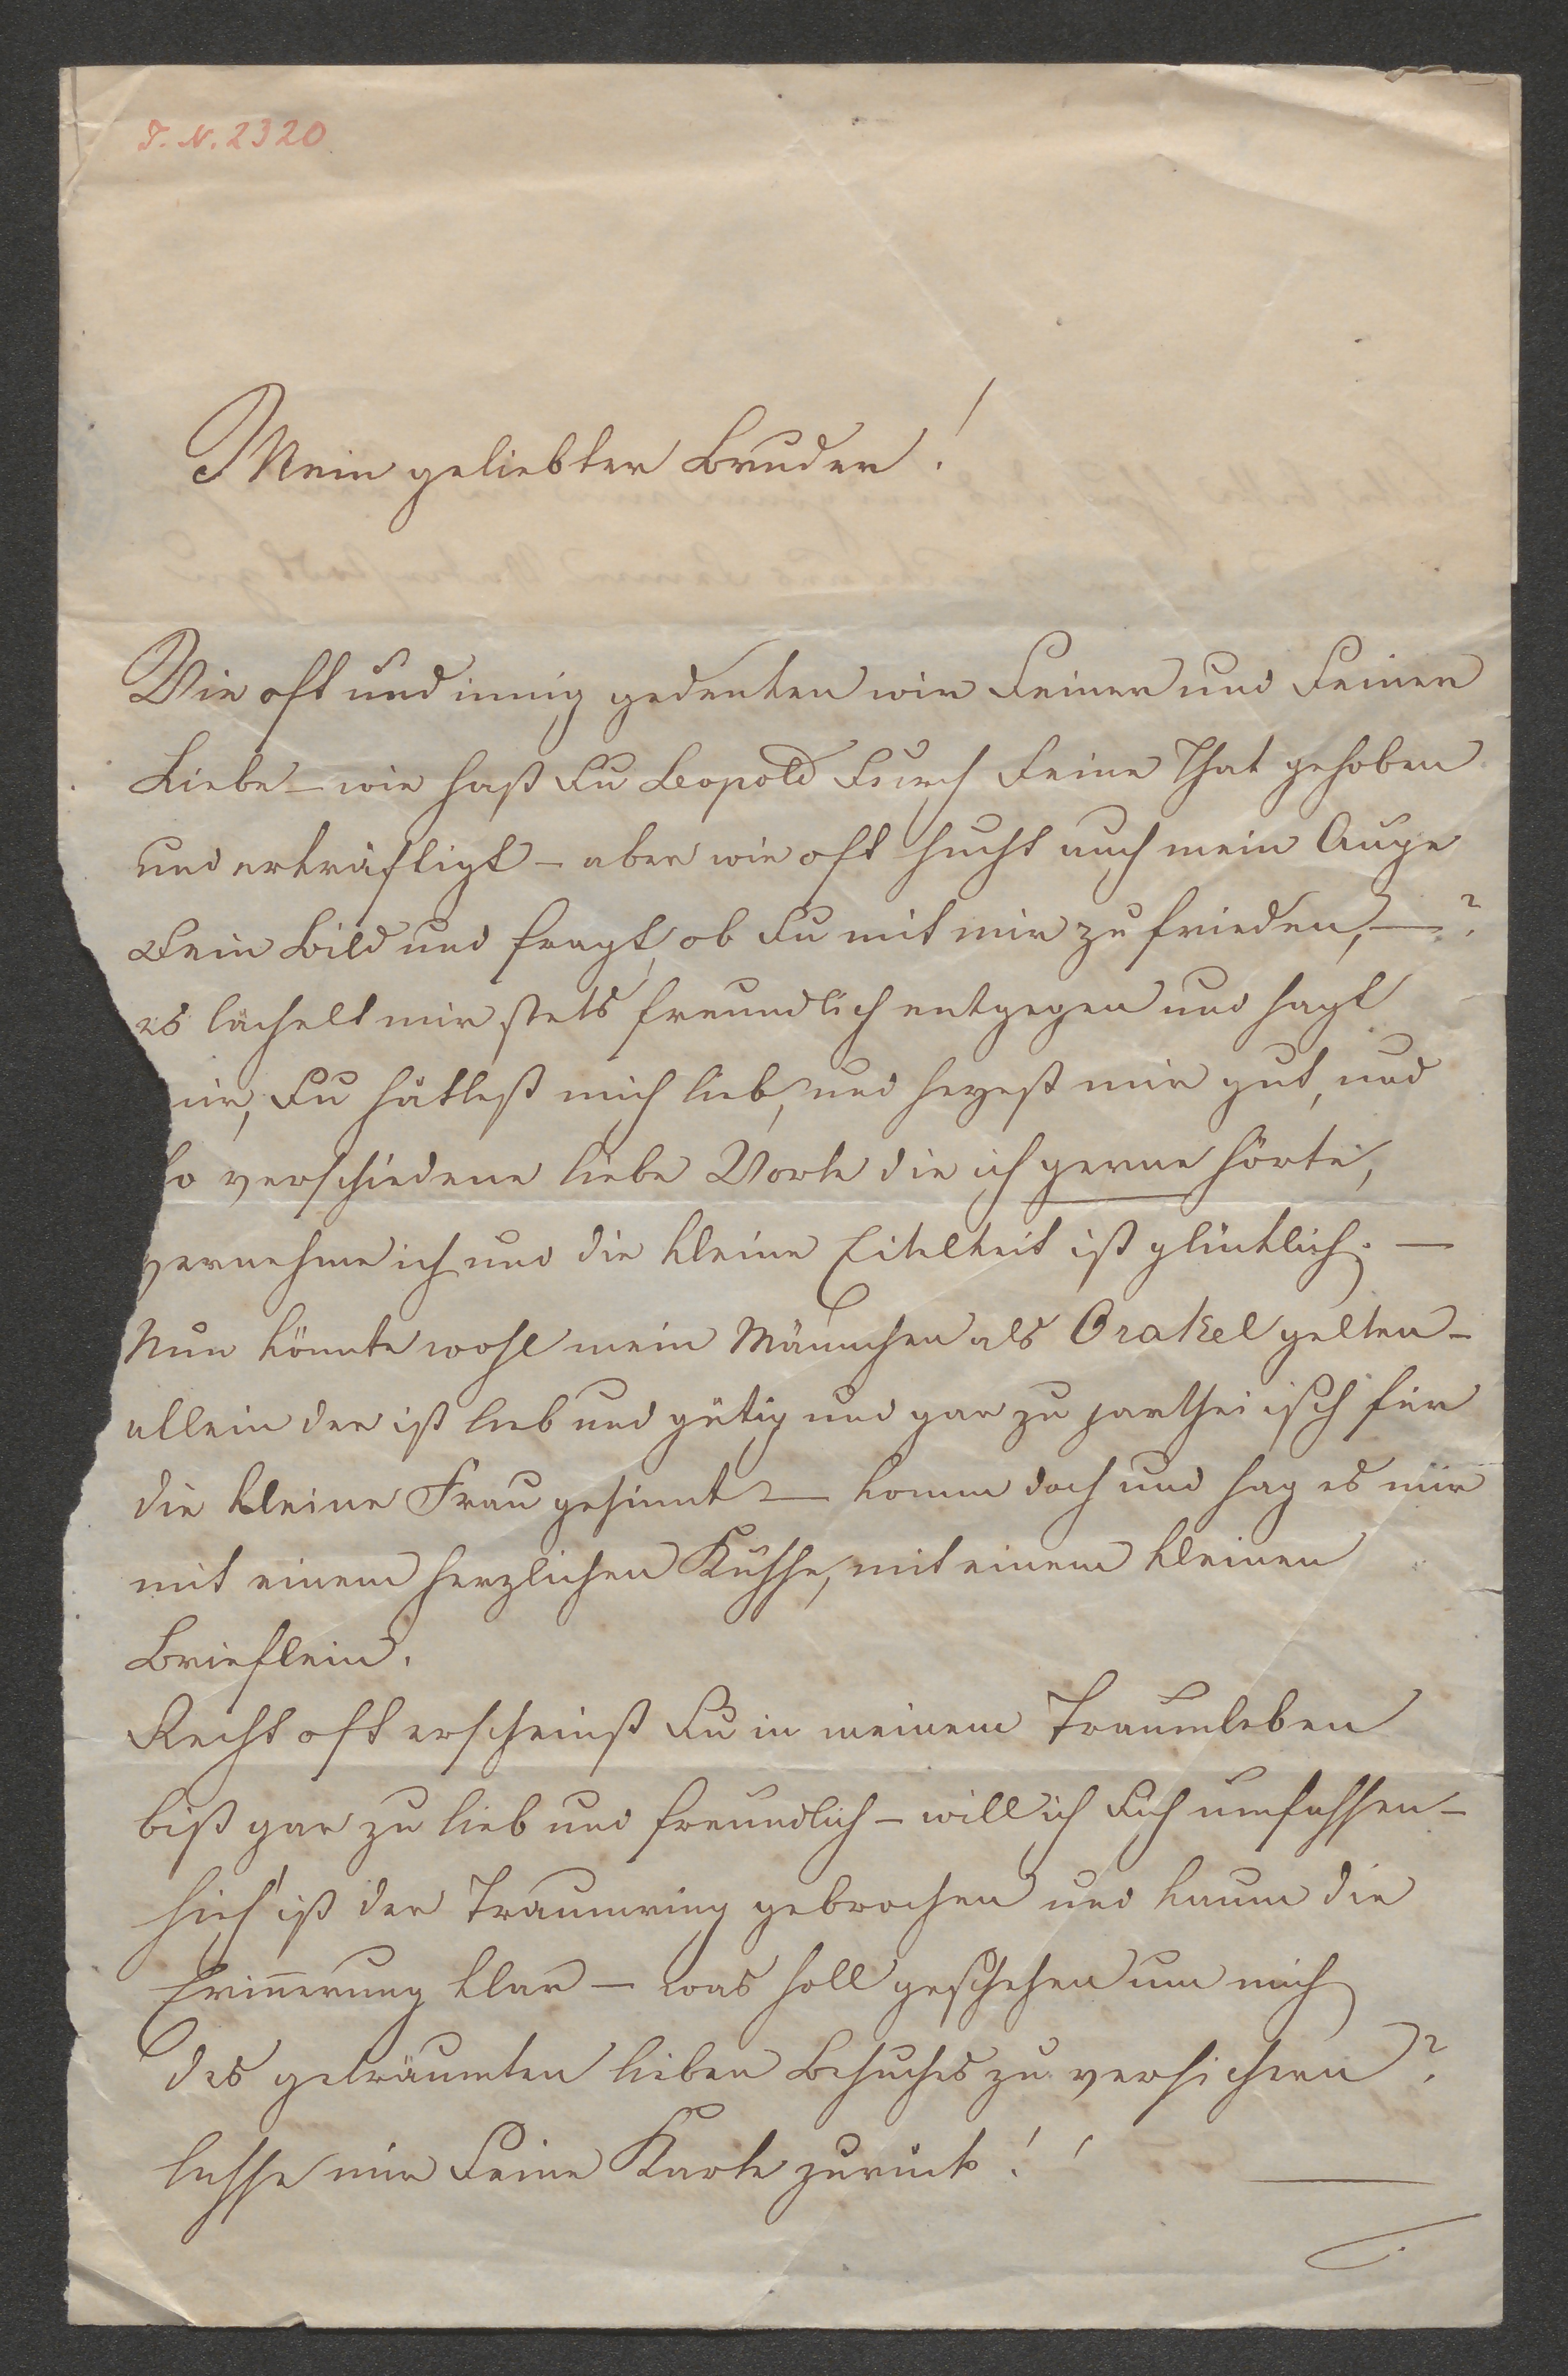 T. N. 2320
Mein geliebter Bruder!
Wie oft und innig gedenken wir Deiner und Deiner
Liebe – wie hast Du Leopold durch Deine That gehoben
und erkräftigt – aber wie oft sucht auch mein Auge
Dein Bild und fragt, ob Du mit mir zufrieden, –?
es lächelt mir stets freundlich entgegen und sagt
mir, Du hättest mich lieb, und seyest mir gut, und
so verschiedene liebe Worte die ich gerne hörte,
vernehme ich und die kleine Eitelkeit ist glücklich. –
Nun könnte wohl mein Männchen als Orakel gelten –
allein der ist lieb und gütig und gar zu partheiisch für
die kleine Frau gesinnt – komm doch und sag es mir
mit einem herzlichen Kusse, mit einem kleinen
Brieflein.
Recht oft erscheinst Du in meinem Traumleben
bist gar zu lieb und freundlich – will ich Dich umfassen –
sieh' ist der Traumring gebrochen und kaum die
Erinnerung klar – was soll geschehen um mich
des geträumten lieben Besuches zu versichern?
lasse mir Deine Karte zurück!!